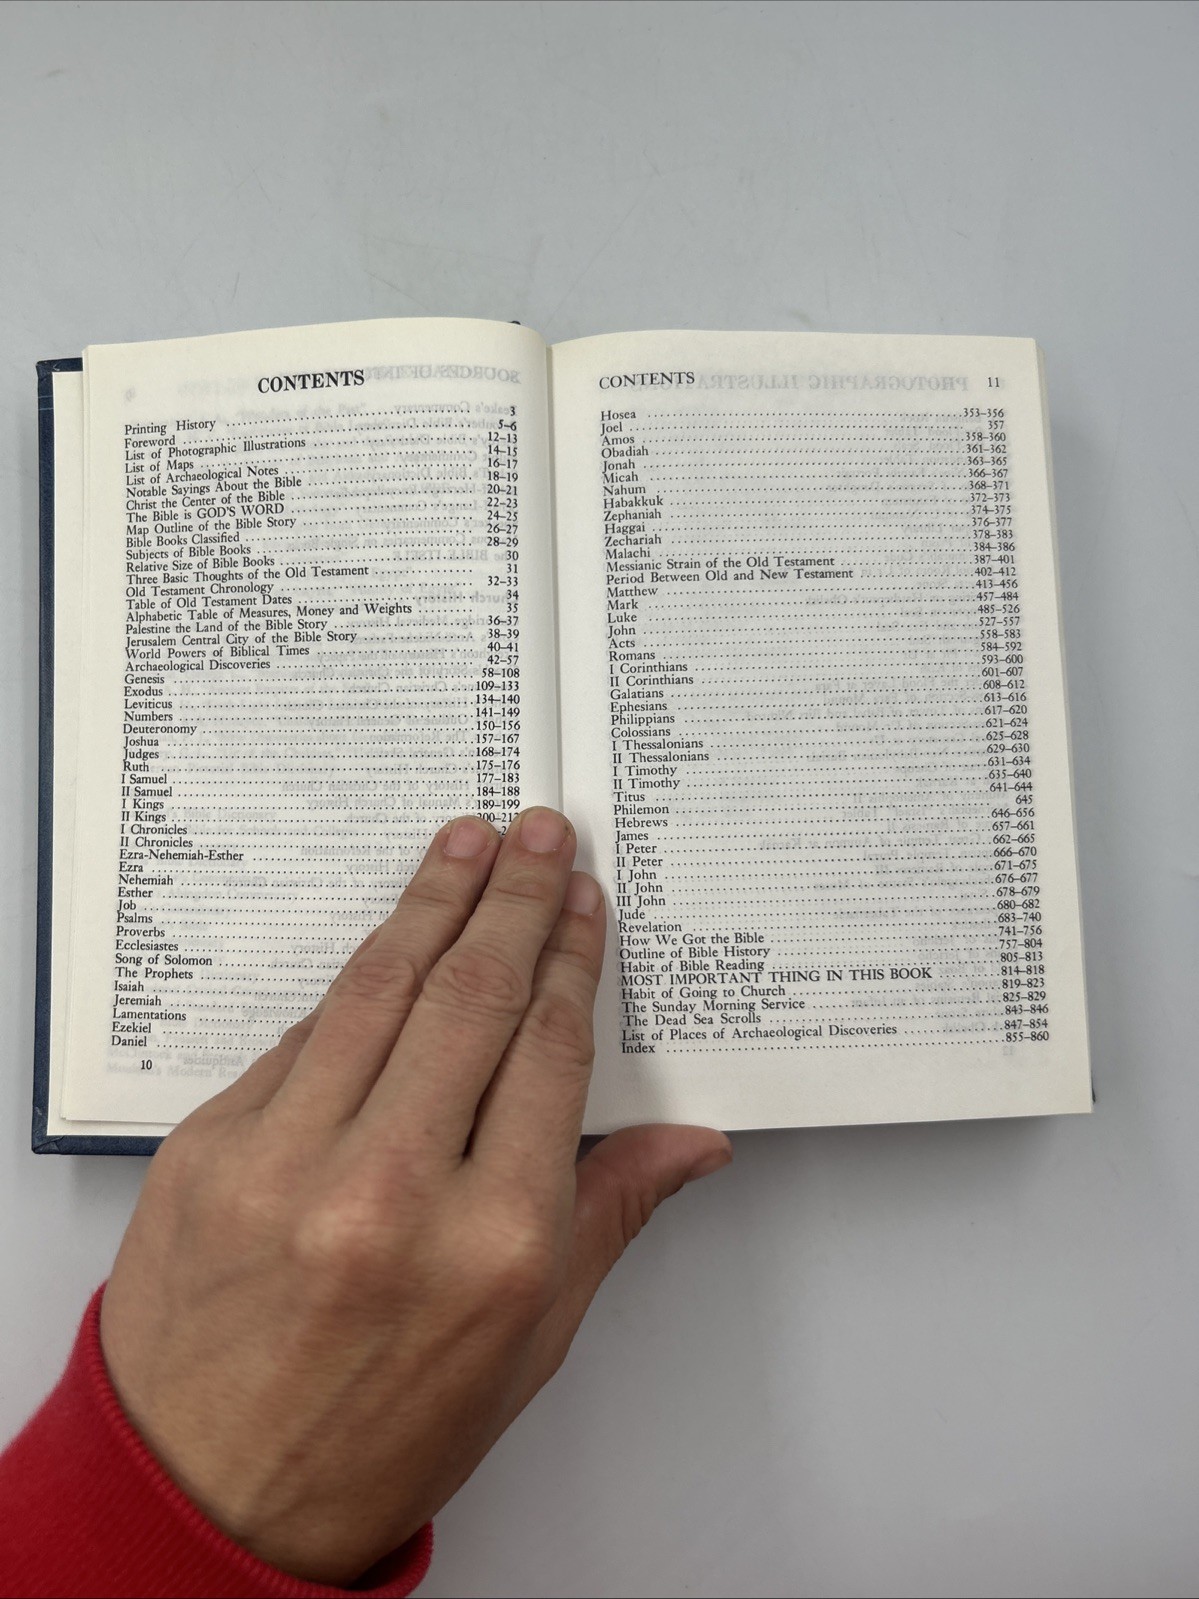 CONTENTS
Printing History 3
Foreword 5–6
List of Photographic Illustrations 12–13
List of Maps 14–15
List of Archaeological Notes 16–17
Notable Sayings About the Bible 18–19
Christ the Center of the Bible 20–21
The Bible is GOD'S WORD 22–23
Map Outline of the Bible Story 24–25
Bible Books Classified 26–27
Subjects of Bible Books 28–29
Relative Size of Bible Books 30
Three Basic Thoughts of the Old Testament 31
Old Testament Chronology 32–33
Table of Old Testament Dates 34
Alphabetic Table of Measures, Money and Weights 35
Palestine the Land of the Bible Story 36–37
Jerusalem Central City of the Bible Story 38–39
World Powers of Biblical Times 40–41
Archaeological Discoveries 42–57
Genesis 58–108
Exodus 109–133
Leviticus 134–140
Numbers 141–149
Deuteronomy 150–156
Joshua 157–167
Judges 168–174
Ruth 175–176
I Samuel 177–183
II Samuel 184–188
I Kings 189–199
II Kings
I Chronicles
II Chronicles
Ezra-Nehemiah-Esther
Ezra
Nehemiah
Esther
Job
Psalms
Proverbs
Ecclesiastes
Song of Solomon
The Prophets
Isaiah
Jeremiah
Lamentations
Ezekiel
Daniel
10
CONTENTS 11
Hosea 353–356
Joel 357
Amos 358–360
Obadiah 361–362
Jonah 363–365
Micah 366–367
Nahum 368–371
Habakkuk 372–373
Zephaniah 374–375
Haggai 376–377
Zechariah 378–383
Malachi 384–386
Messianic Strain of the Old Testament 387–401
Period Between Old and New Testament 402–412
Matthew 413–456
Mark 457–484
Luke 485–526
John 527–557
Acts 558–583
Romans 584–592
I Corinthians 593–600
II Corinthians 601–607
Galatians 608–612
Ephesians 613–616
Philippians 617–620
Colossians 621–624
I Thessalonians 625–628
II Thessalonians 629–630
I Timothy 631–634
II Timothy 635–640
Titus 641–644
Philemon 645
Hebrews 646–656
James 657–661
I Peter 662–665
II Peter 666–670
I John 671–675
II John 676–677
III John 678–679
Jude 680–682
Revelation 683–740
How We Got the Bible 741–756
Outline of Bible History 757–804
Habit of Bible Reading 805–813
MOST IMPORTANT THING IN THIS BOOK 814–818
Habit of Going to Church 819–823
The Sunday Morning Service 825–829
The Dead Sea Scrolls 843–846
List of Places of Archaeological Discoveries 847–854
Index 855–860